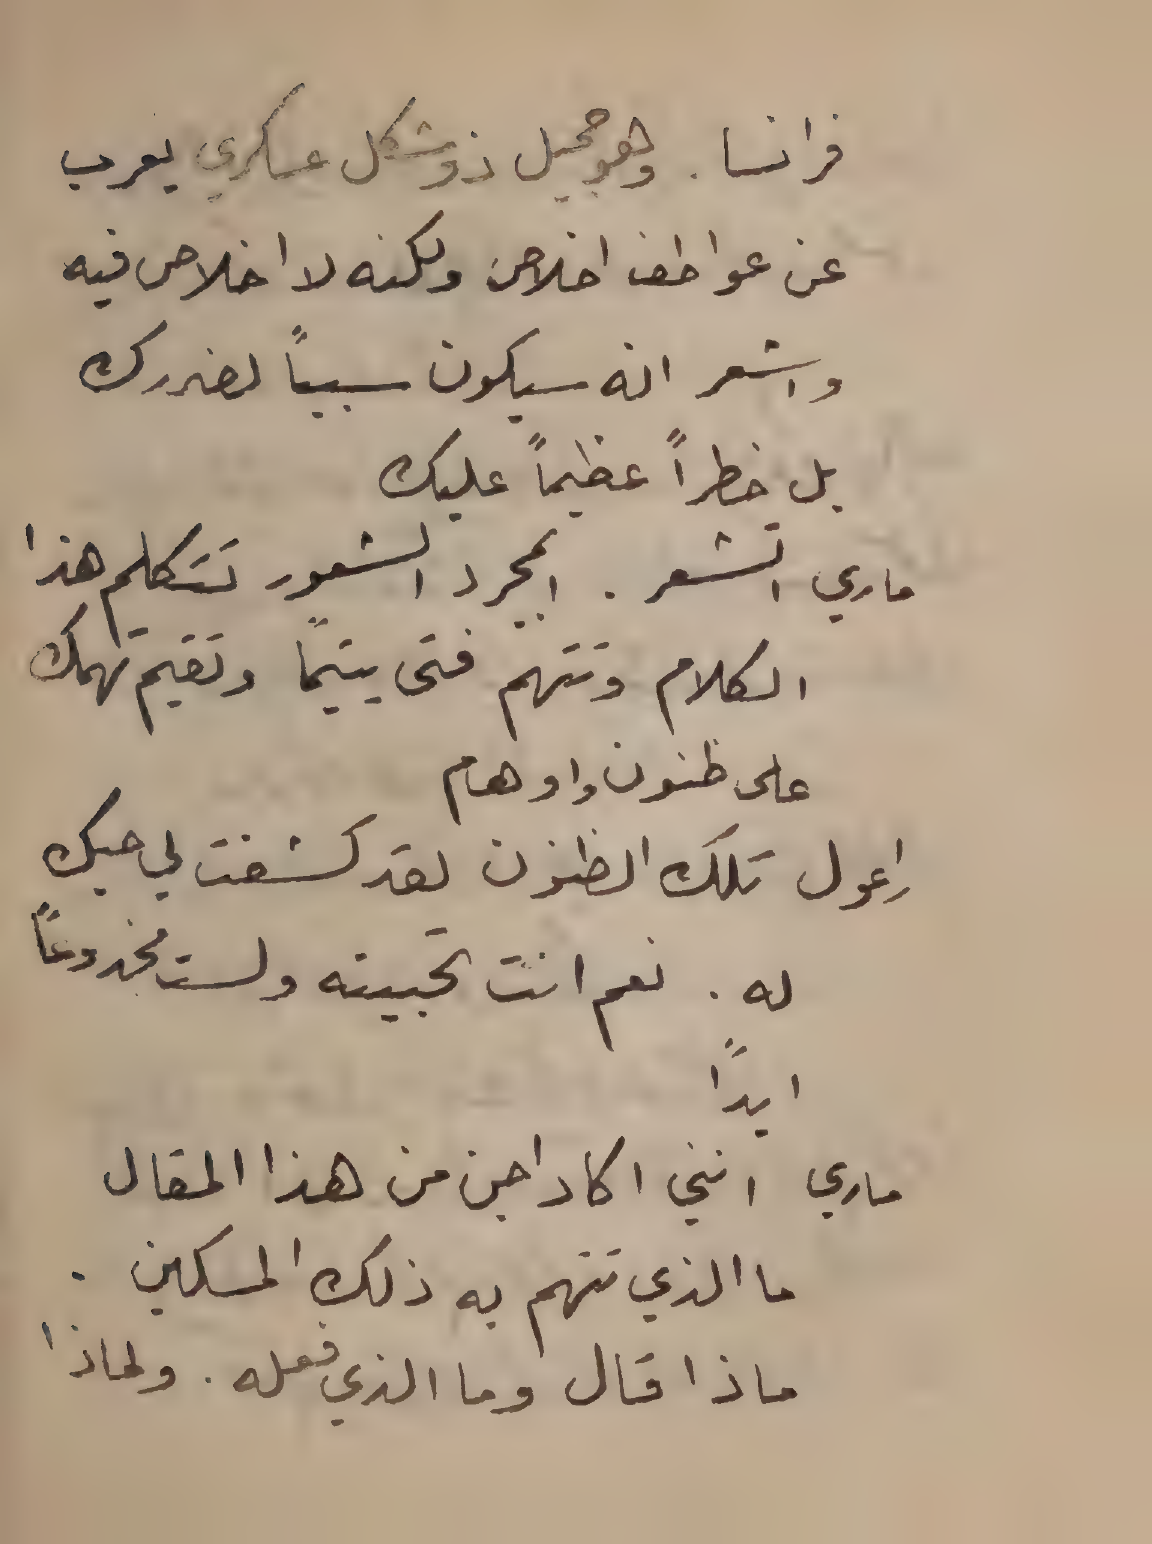 فرانسا . وهو جميل ذو شكل عسكري يعرب
عن عواطف اخلاص ولكنه لا اخلاص فيه
واشعر انه سيكون سبباً لضررك
بل خطراً عظيماً عليك
ماري اتشعر . المجرد الشعور تتكلم هذا
الكلام وتتهم فتى يتيمًا وتقيم تهمك
على ظنون واوهام
راعول تلك الظنون لقد كشفت لي حبك
له . نعم انت تحبينه ولست مخدوعاً
ابدًا
ماري انني اكاد اجن من هذا المقال
ما الذي تتهم به ذلك المسكين .
ماذا قال وما الذي فعله . ولماذا